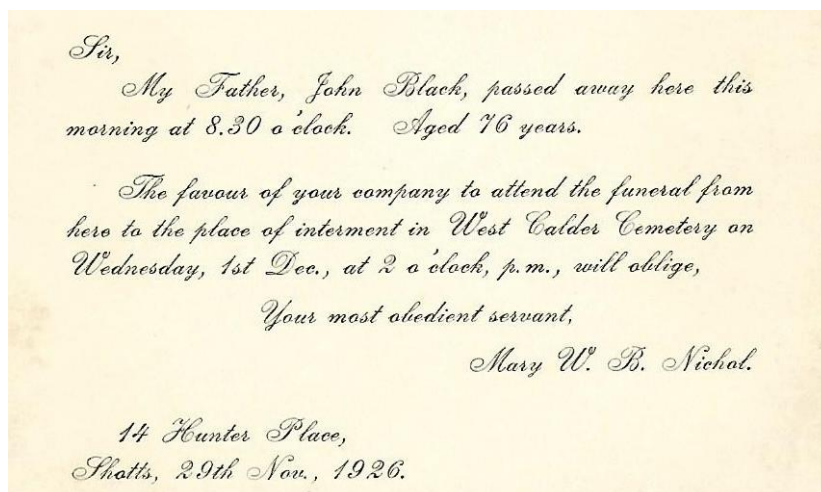 Sir,
My Father, John Black, passed away here this
morning at 8.30 o'clock. Aged 76 years.
The favour of your company to attend the funeral from
here to the place of interment in West Calder Cemetery on
Wednesday, 1st Dec., at 2 o'clock, p.m., will oblige,
Your most obedient servant,
Mary W. B. Nichol.
14 Hunter Place,
Shotts, 29th Nov., 1926.